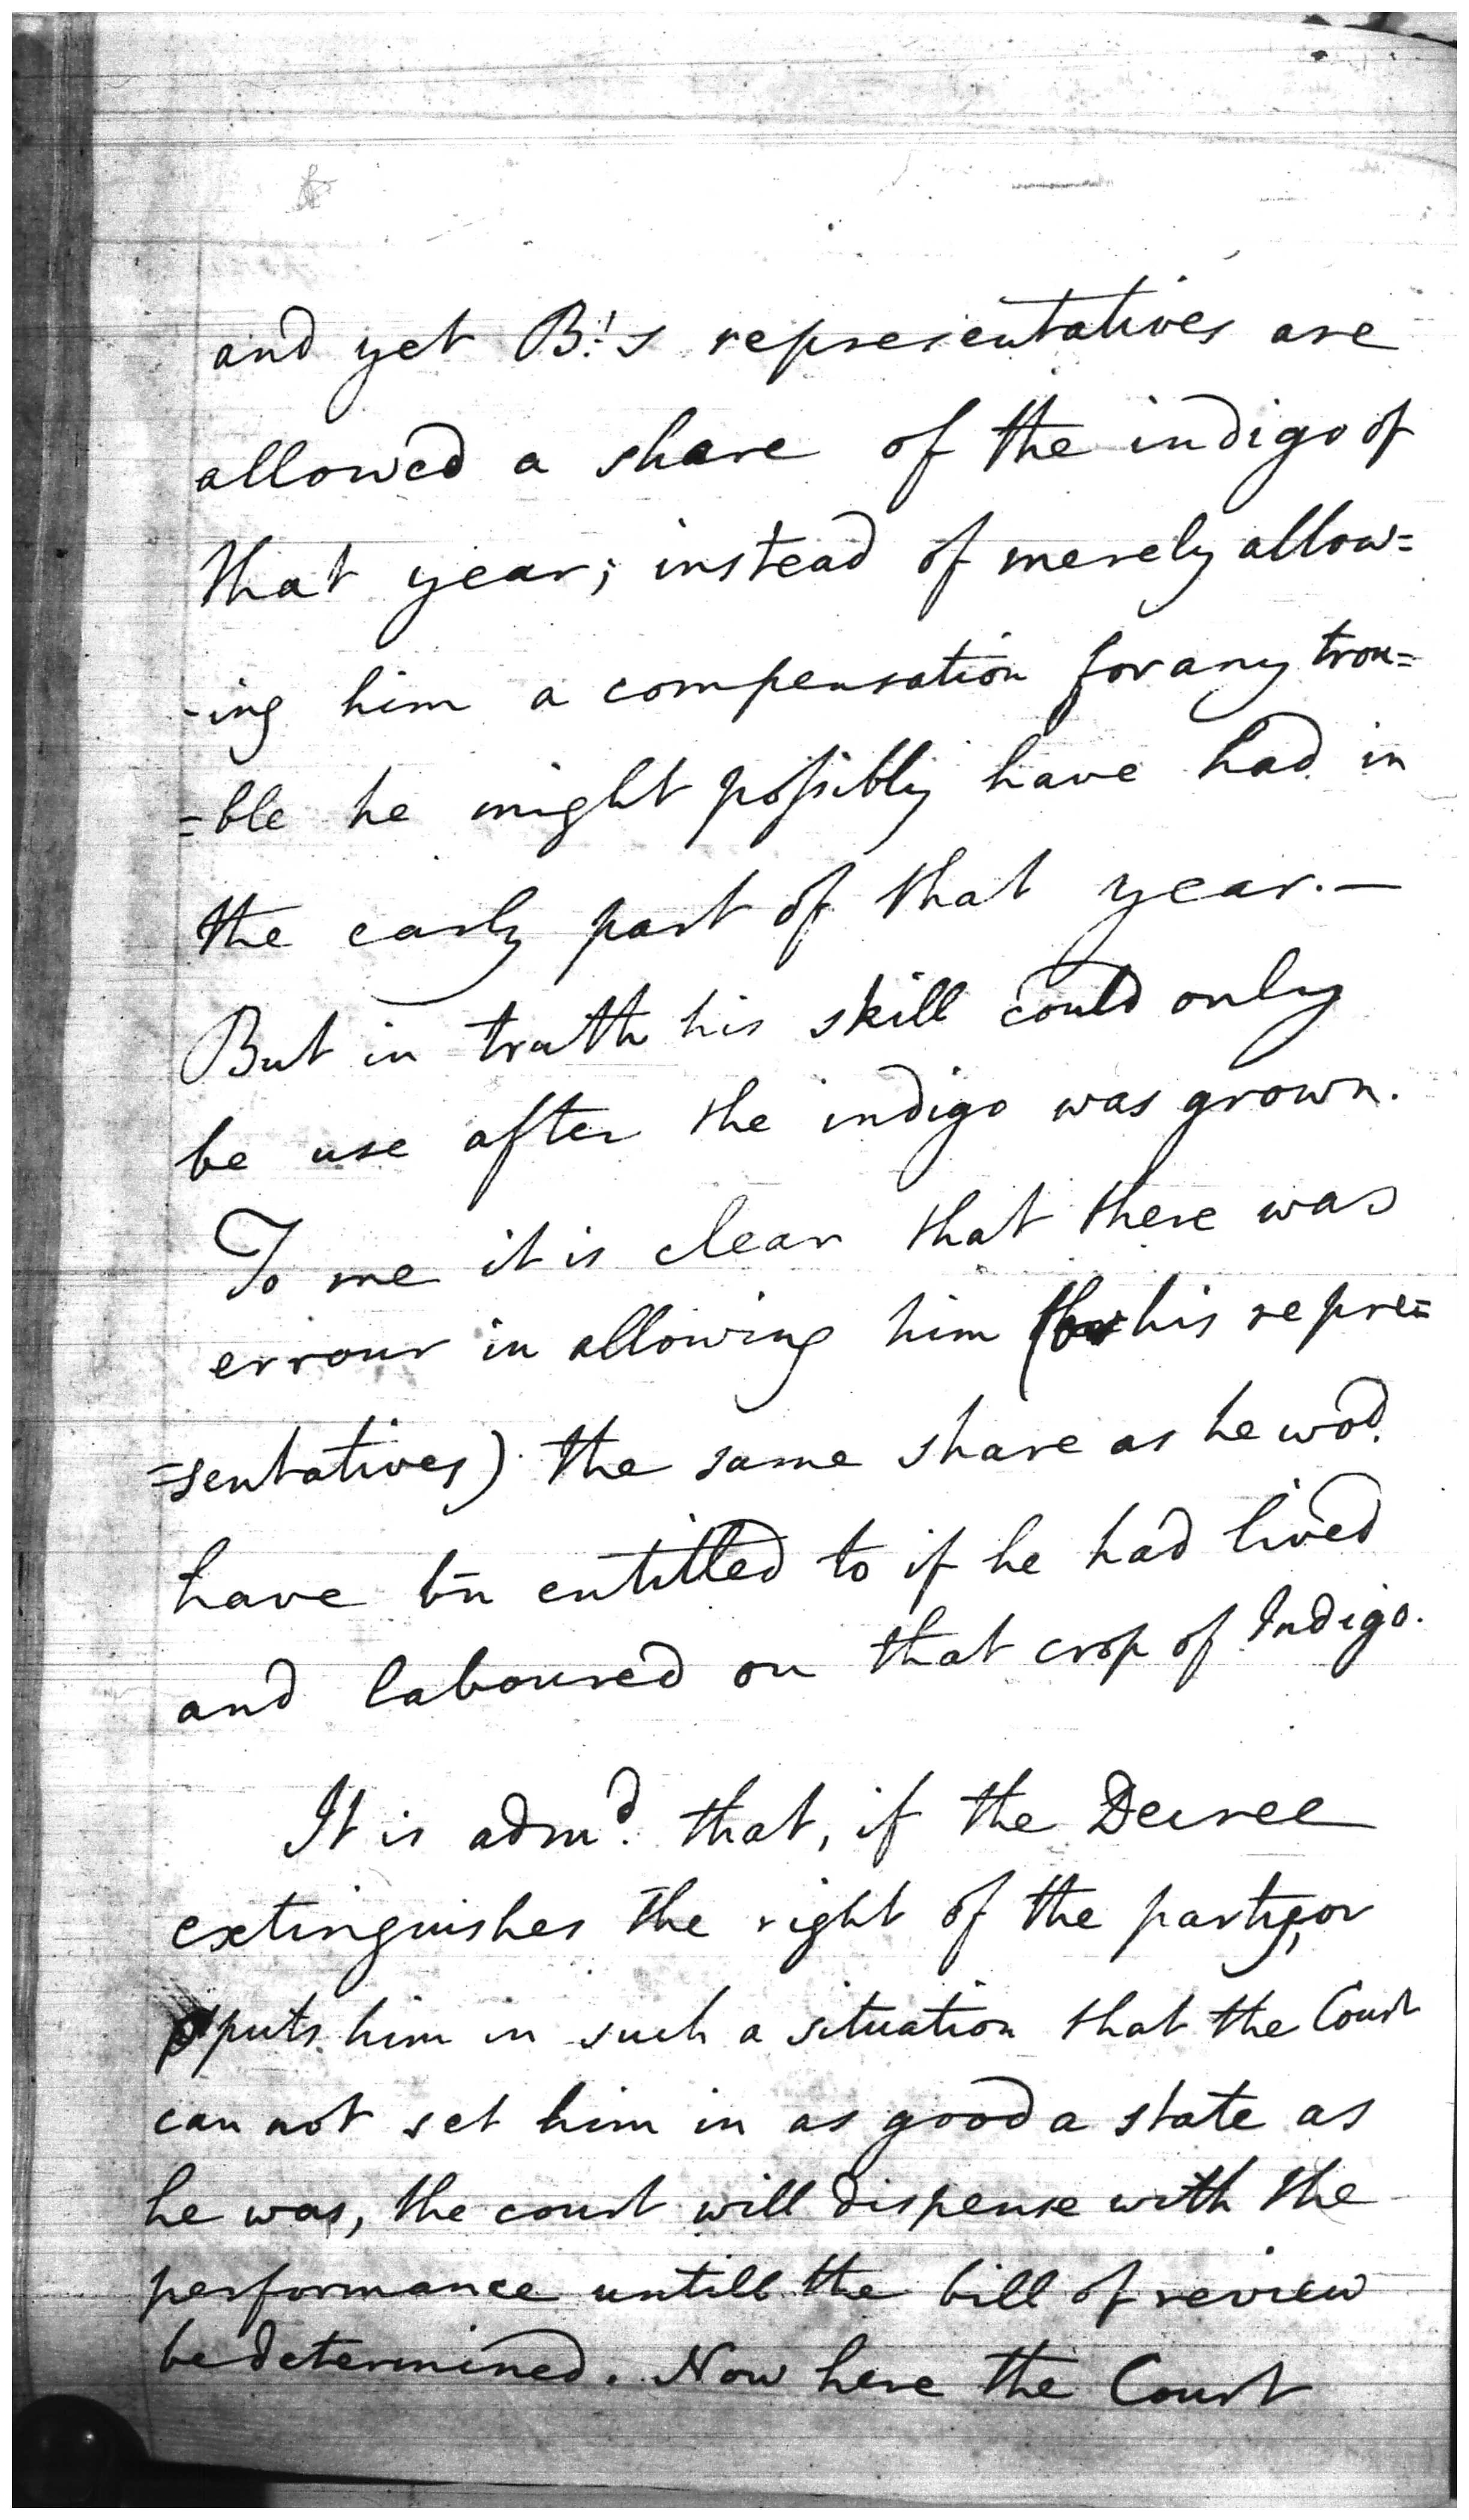 and yet B.'s representatives are
allowed a share of the indigo of
that year; instead of merely allow=
-ing him a compensation for any trou=
=ble he might possibly have had in
the early part of that year.—
But in truth his skill could only
be use after the indigo was grown.
To me it is clear that there was
errour in allowing him (or his repre=
=sentatives) the same share as he wod.
have bn entitled to if he had lived
and laboured on that crop of Indigo.
It is admd. that, if the Decree
extinguishes the right of the party, or
puts him in such a situation that the Court
can not set him in as good a state as
he was, the court will dispense with the
performance untill the bill of review
be determined. Now here the Court